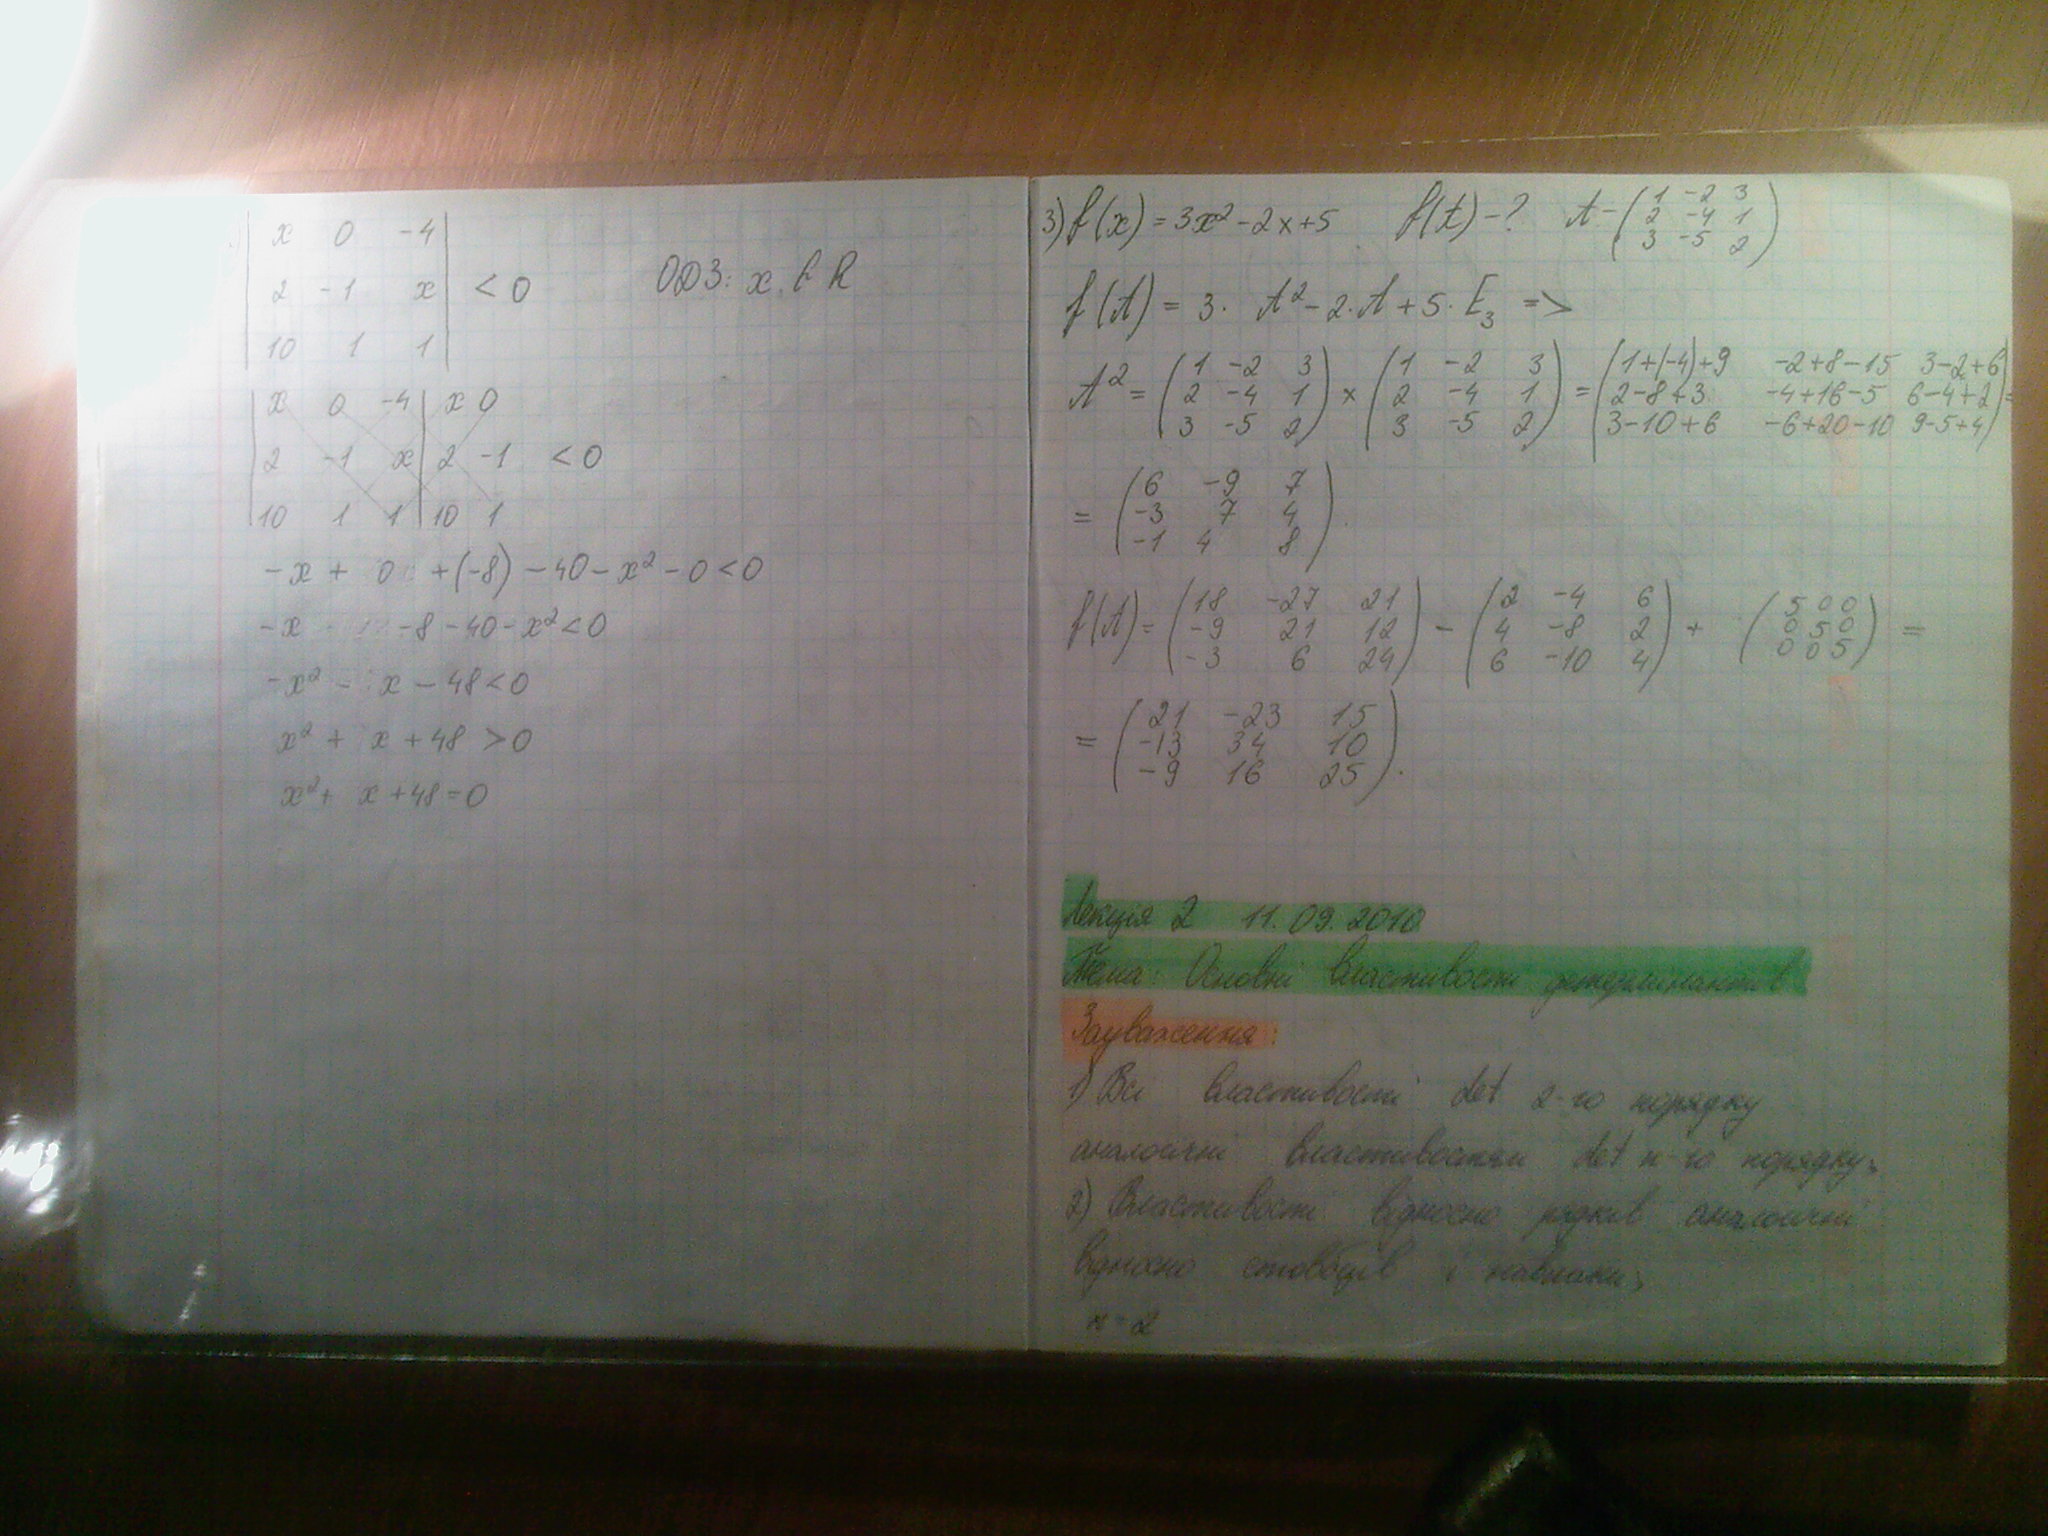 | x 0 -4 |
| 2 -1 x | < 0 ОДЗ: x ∈ R
| 10 1 1 |
| x 0 -4 | x 0
| 2 -1 x | 2 -1 < 0
| 10 1 1 | 10 1
-x + 0 + (-8) - 40 - x² - 0 < 0
-x - 8 - 40 - x² < 0
-x² - x - 48 < 0
x² + x + 48 > 0
x² + x + 48 = 0
3) f(x) = 3x² - 2x + 5 f(A) - ? A = (1 -2 3
2 -4 1
3 -5 2)
f(A) = 3 · A² - 2·A + 5·E₃ =>
A² = (1 -2 3 × (1 -2 3 = (1+(-4)+9 -2+8-15 3-2+6
2 -4 1 2 -4 1 2-8+3 -4+16-5 6-4+2
3 -5 2) 3 -5 2) 3-10+6 -6+20-10 9-5+4) =
= (6 -9 7
-3 7 4
-1 4 8).
f(A) = (18 -27 21 - (2 -4 6 + (5 0 0 =
-9 21 12 4 -8 2 0 5 0
-3 6 24) 6 -10 4) 0 0 5)
= (21 -23 15
-13 34 10
-9 16 25).
Лекція 2 11.09.2010
Тема: Основні властивості детермінантів
Зауваження:
1) Всі властивості det 2-го порядку
аналогічні властивостям det n-го порядку;
2) Властивості відносно рядків аналогічні
відносно стовбців і навпаки;
n = 2